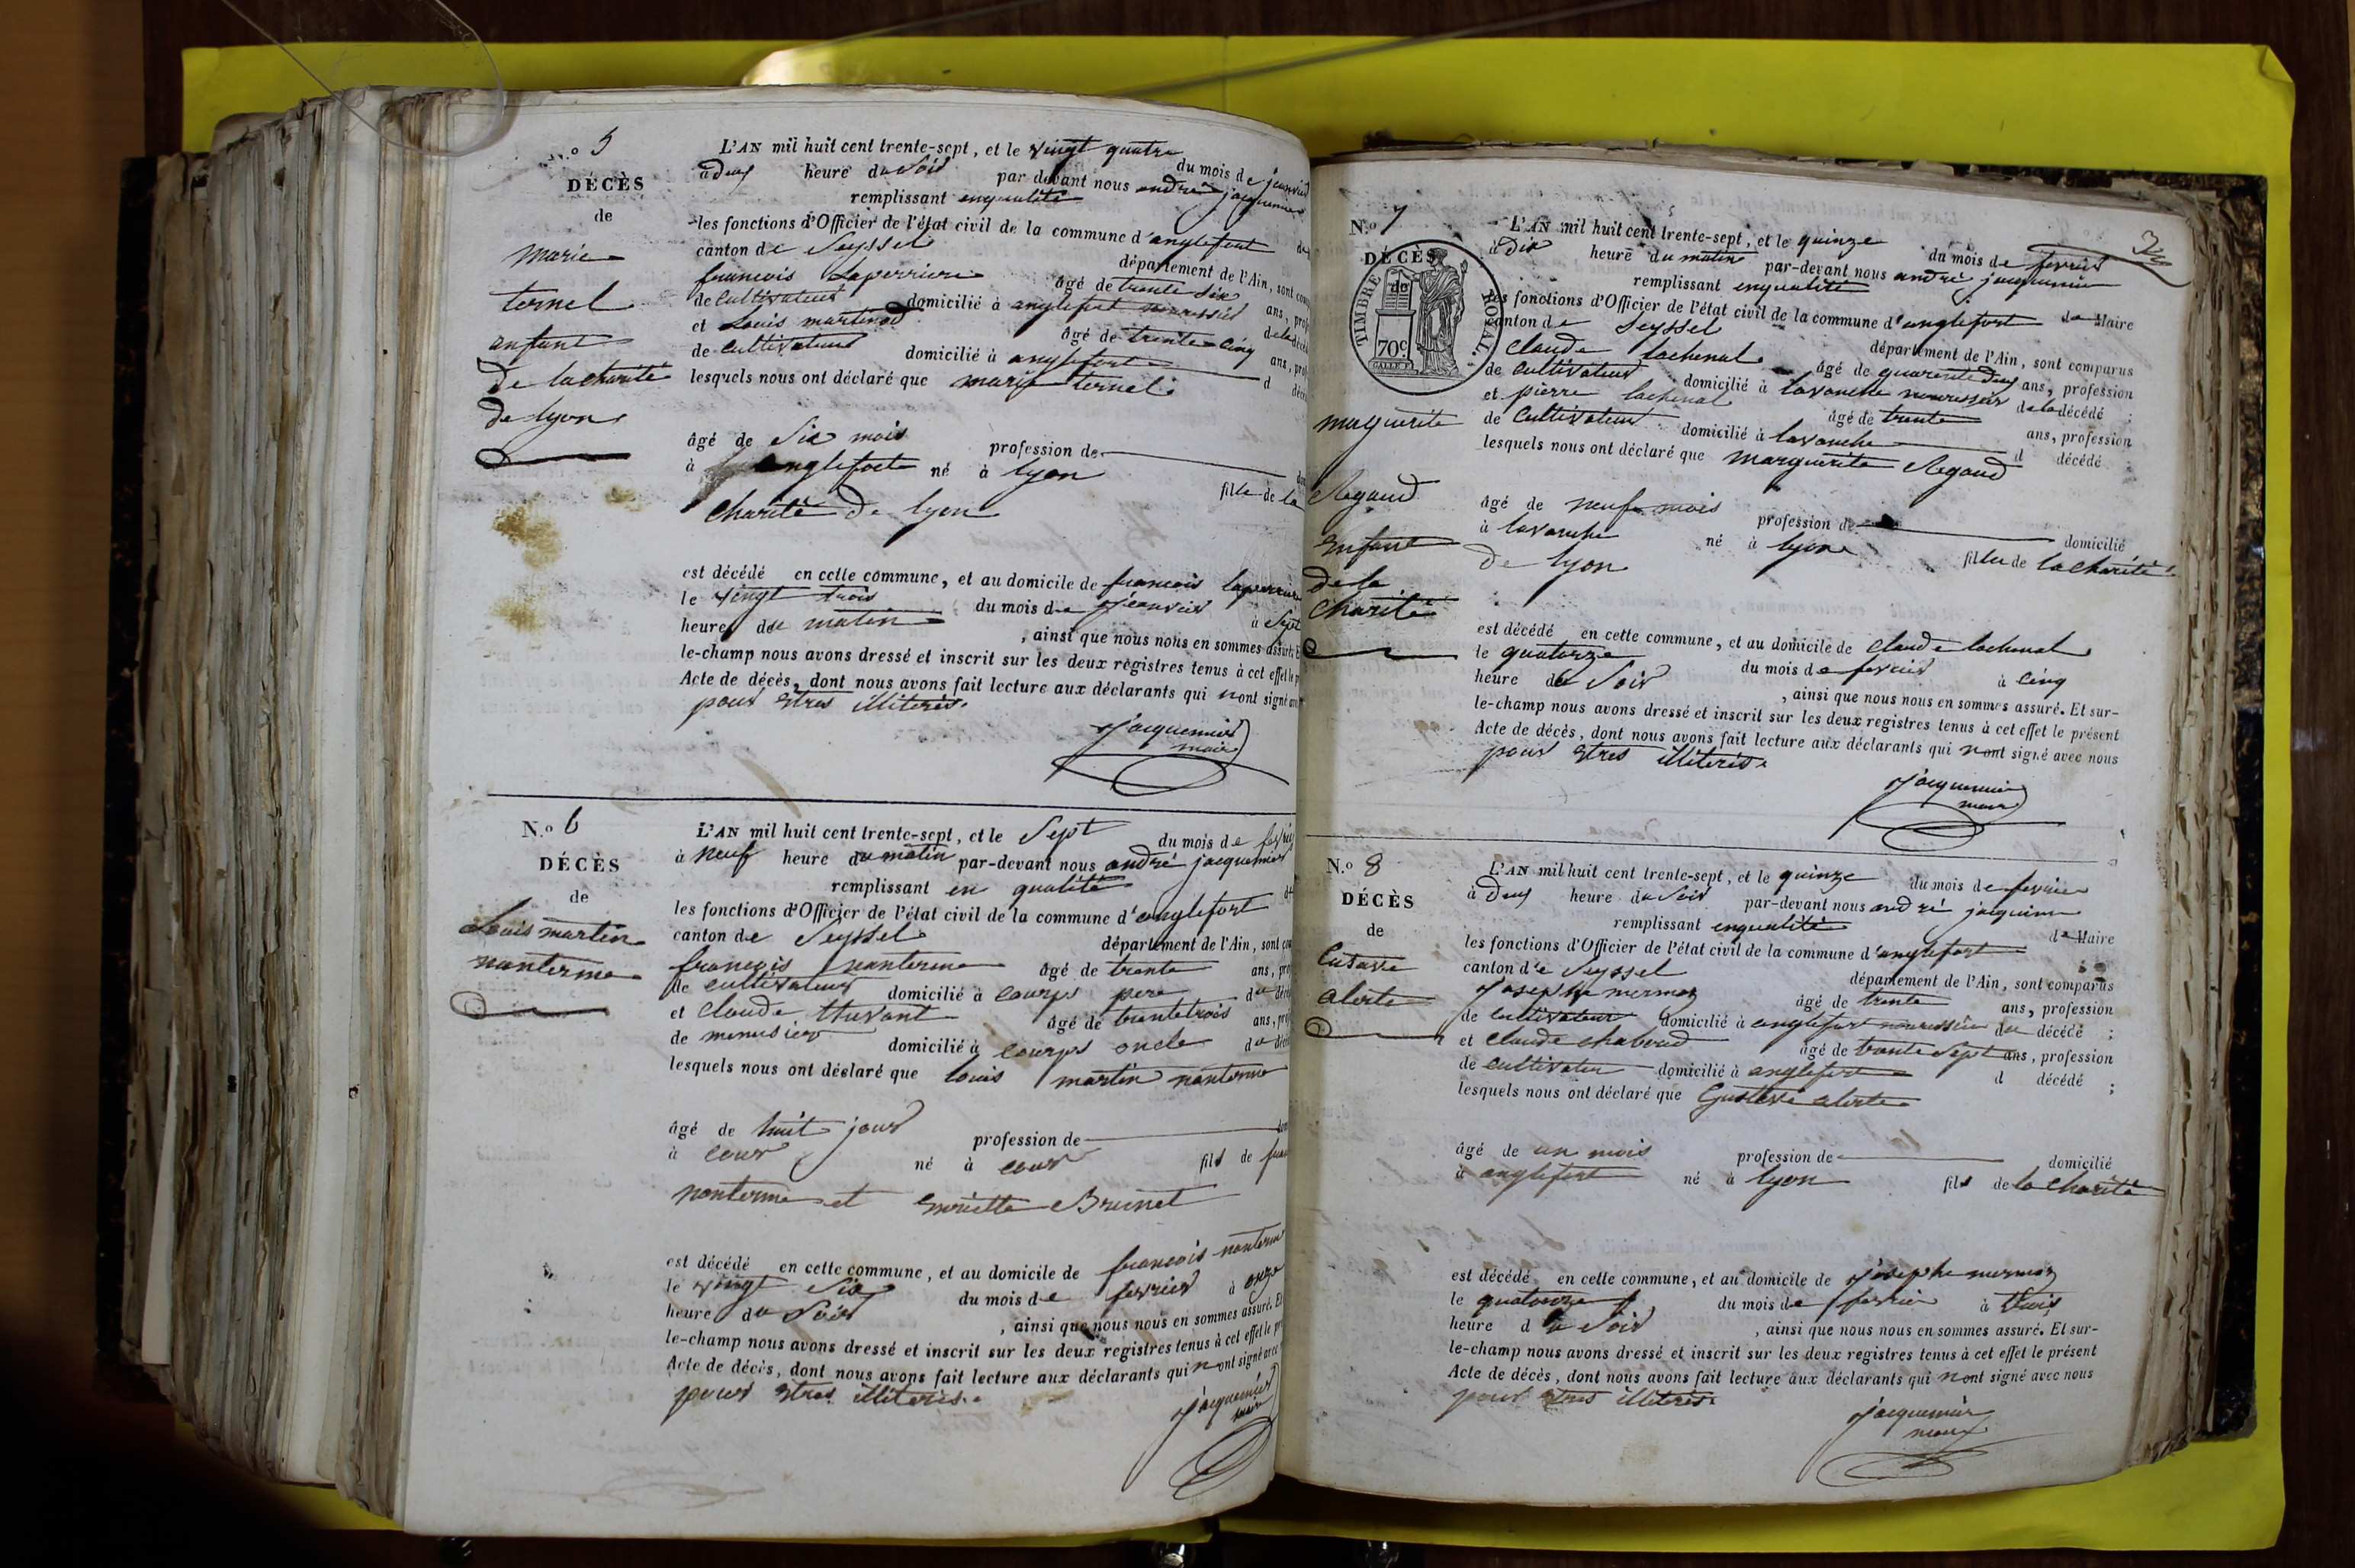 N.º 5
DÉCÈS
de
marie
ternel
enfant
De la charité
De lyon
L'AN mil huit cent trente-sept, et le vingt quatre du mois de janvier
à deux heure du soir par devant nous andré jacquemier
remplissant en qualité
les fonctions d'Officier de l'état civil de la commune d'anglefort de
canton de Seyssel département de l'Ain, sont
francois Laperriere âgé de trente six ans,
de Cultivateur domicilié à anglefort nourissier de la
et Louis martinod âgé de trente cinq ans,
de cultivateur domicilié à anglefort d
lesquels nous ont déclaré que marie ternel
âgé de Six mois profession de
à anglefort né à lyon fille de la
charité De lyon
est décédé en cette commune, et au domicile de francois laperriere
le vingt trois du mois de Janvier à Sept
heure du matin, ainsi que nous nous en sommes assuré.
le-champ nous avons dressé et inscrit sur les deux registres tenus à cet effet le
Acte de décès, dont nous avons fait lecture aux déclarants qui nont signé
pour Etres illiterés.
Jacquemier
maire
N.º 6
DÉCÈS
de
Louis martin
nanterme
L'AN mil huit cent trente-sept, et le Sept du mois de
à neuf heure du matin par-devant nous andré jacquemier
remplissant en qualité
les fonctions d'Officier de l'état civil de la commune d'anglefort
canton de Seyssel département de l'Ain, sont
françois nanterme âgé de trente ans,
de cultivateur domicilié à courps pere du
et Claude thuvant âgé de trente trois ans,
de menusier domicilié à courps oncle du
lesquels nous ont déclaré que louis martin nanterme
âgé de huit jour profession de
à cour né à cour fils de
nanterme et Brunet
est décédé en cette commune, et au domicile de francois nanterme
le vingt Six du mois de fevrier à onze
heure du Soir, ainsi que nous nous en sommes assuré.
le-champ nous avons dressé et inscrit sur les deux registres tenus à cet effet le
Acte de décès, dont nous avons fait lecture aux déclarants qui nont signé avec
pour Etres illiterés.
Jacquemier
maire
N.º 7
DÉCÈS
de
TIMBRE ROYAL.
70c
marguerite
Regaud
Enfant
De la
Charité
L'AN mil huit cent trente-sept, et le quinze du mois de fevrier
à Dix heure du matin par-devant nous andré jacquemier
remplissant en qualité de Maire
les fonctions d'Officier de l'état civil de la commune d'anglefort
canton de Seyssel département de l'Ain, sont comparus
Claude lachenal âgé de quarente deux ans, profession
de Cultivateur domicilié à lavanche nourissier de la décédé ;
et pierre lachenal âgé de trente ans, profession
de Cultivateur domicilié à lavanche d décédé ;
lesquels nous ont déclaré que marguerite Regaud
âgé de neuf mois profession de domicilié
à lavanche né à lyon fille de la charité
De lyon
est décédé en cette commune, et au domicile de Claude lachenal
le quatorze du mois de fevrier à Cinq
heure du Soir, ainsi que nous nous en sommes assuré. Et sur-
le-champ nous avons dressé et inscrit sur les deux registres tenus à cet effet le présent
Acte de décès, dont nous avons fait lecture aux déclarants qui nont signé avec nous
pour Etres illiterés.
Jacquemier
maire
N.º 8
DÉCÈS
de
alerte
L'AN mil huit cent trente-sept, et le quinze du mois de fevrier
à Deux heure du Soir par-devant nous andré jacquemier
remplissant en qualité de Maire
les fonctions d'Officier de l'état civil de la commune d'anglefort
canton de Seyssel département de l'Ain, sont comparus
Josephe mermoz âgé de trente ans, profession
de Cultivateur domicilié à anglefort nourissier du décédé ;
et Claude chaboud âgé de trente Sept ans, profession
de Cultivateur domicilié à anglefort d décédé ;
lesquels nous ont déclaré que Gustave alerte
âgé de un mois profession de domicilié
à anglefort né à lyon fils de la charité
est décédé en cette commune, et au domicile de Josephe mermoz
le quatorze du mois de fevrier à trois
heure du Soir, ainsi que nous nous en sommes assuré. Et sur-
le-champ nous avons dressé et inscrit sur les deux registres tenus à cet effet le présent
Acte de décès, dont nous avons fait lecture aux déclarants qui nont signé avec nous
pour Etres illiterés.
Jacquemier
maire